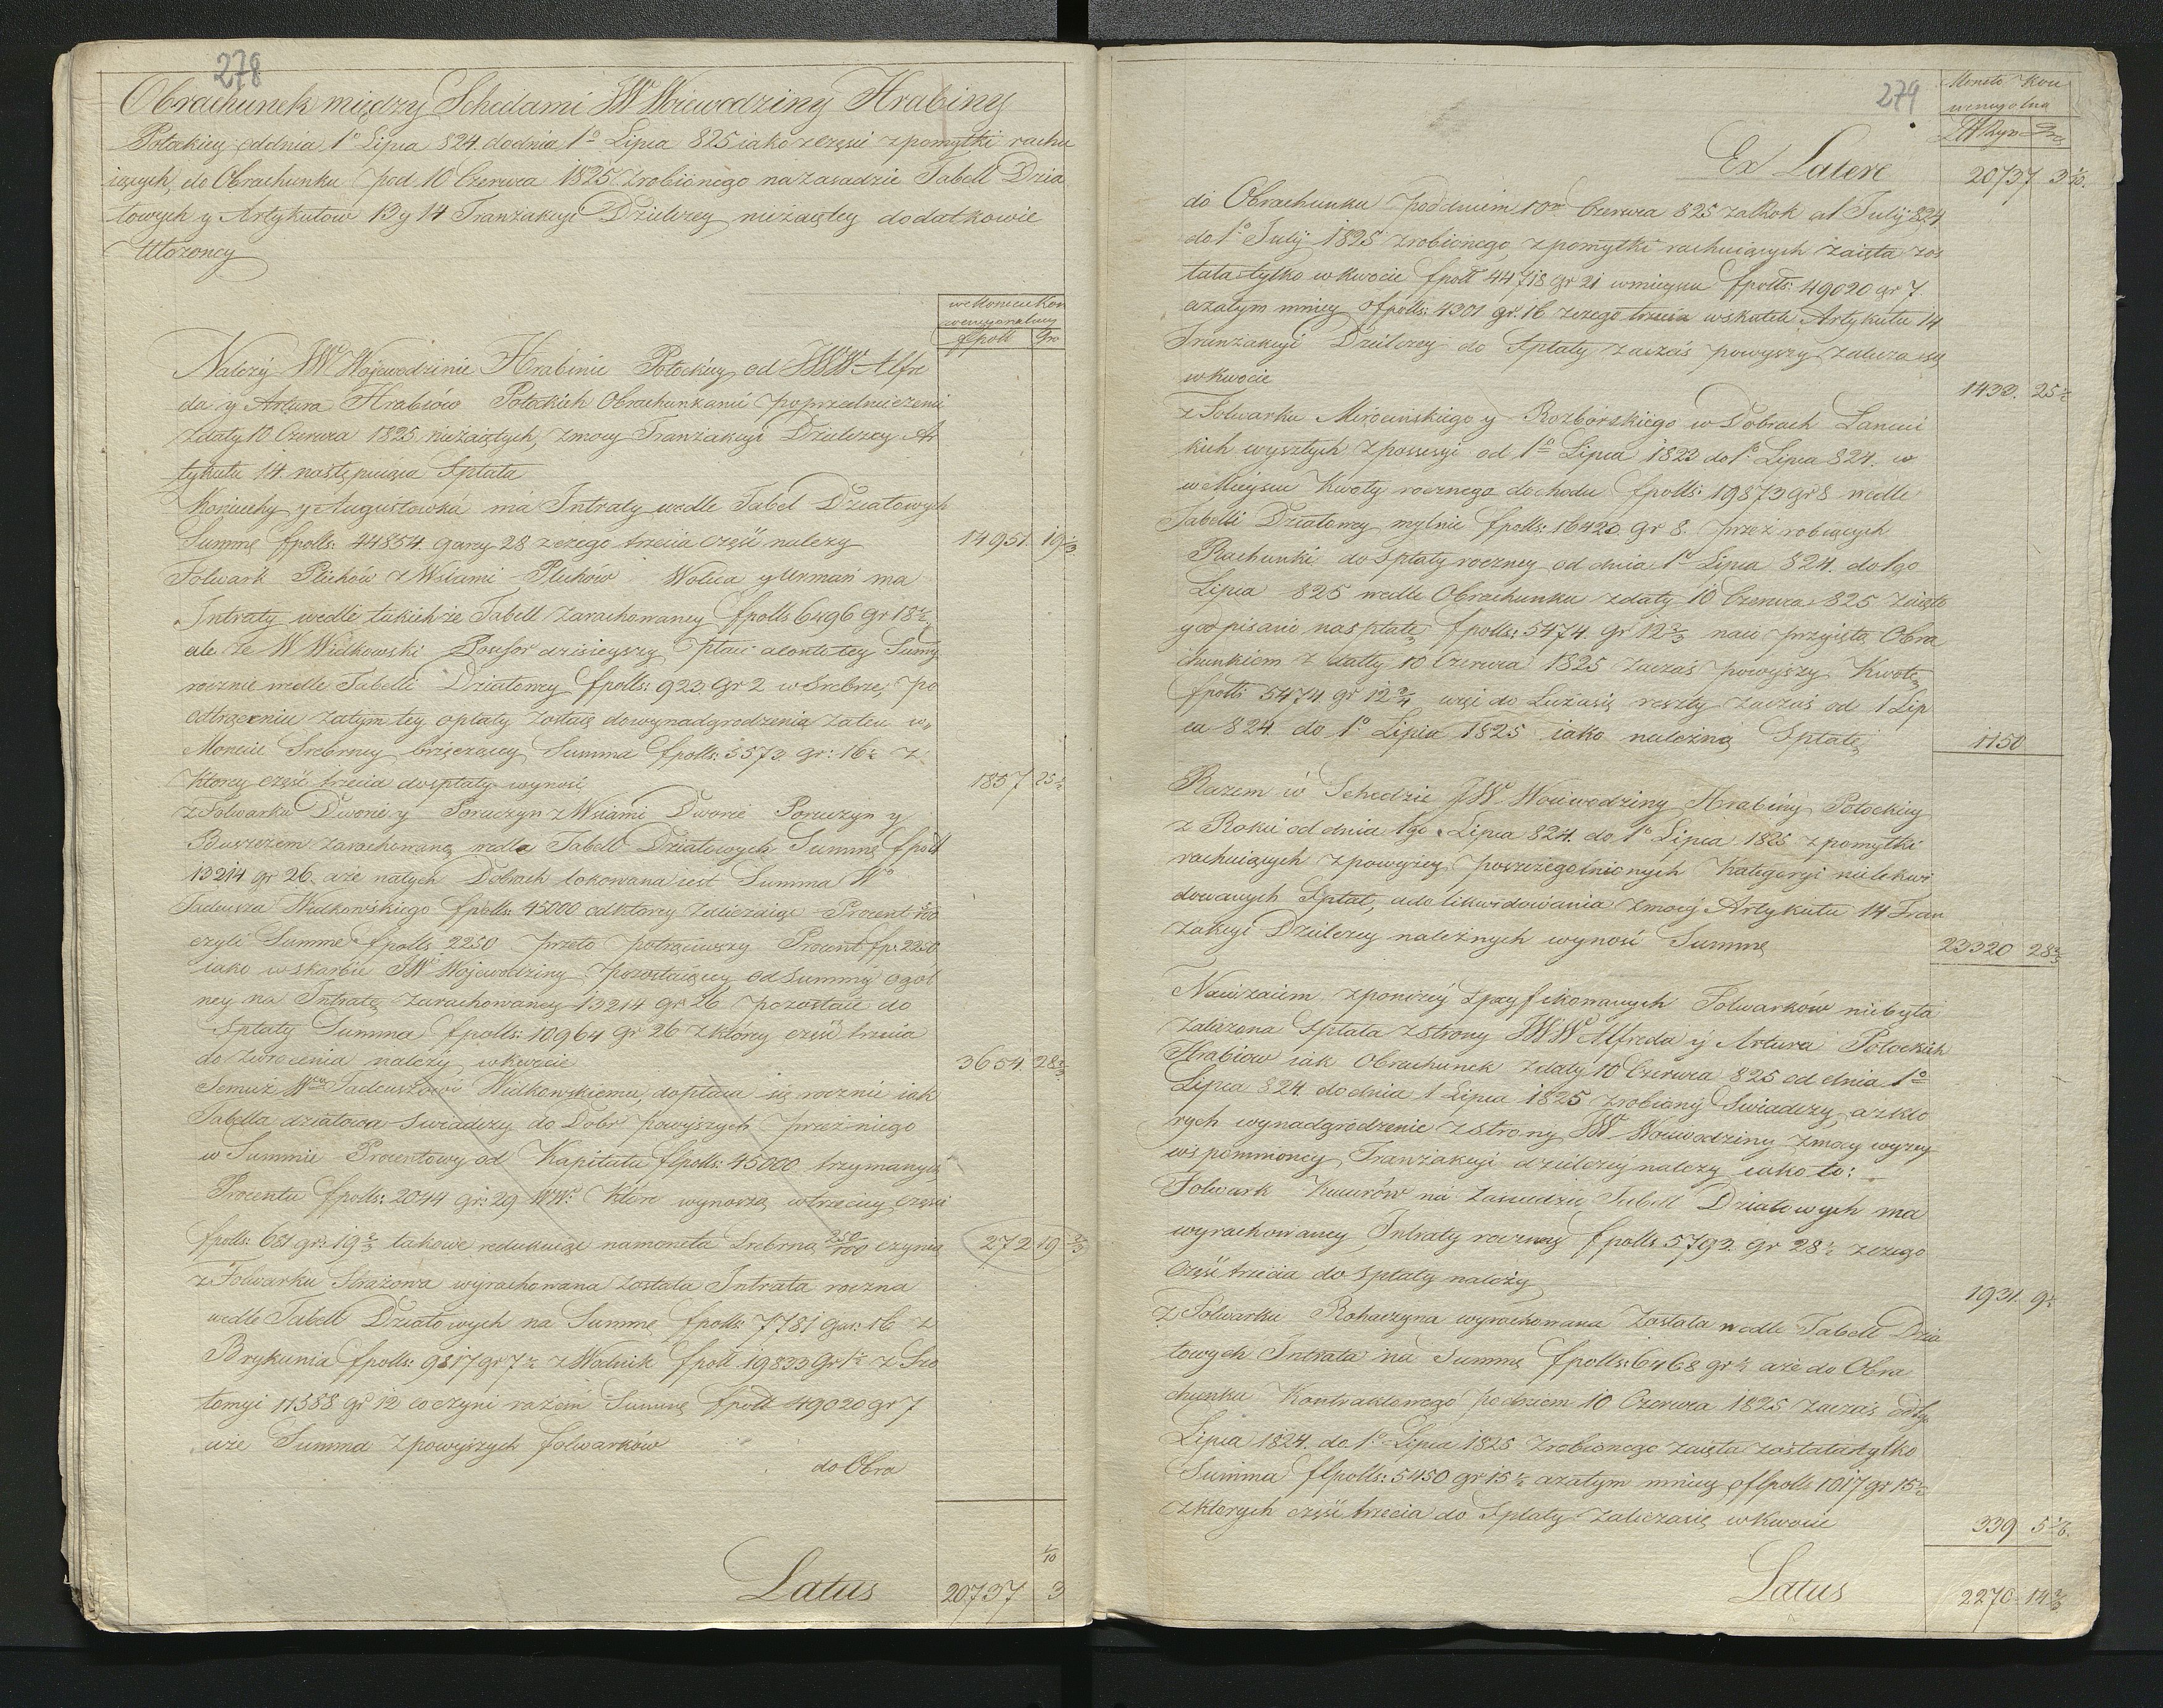 278
Obrachunek między Schedami JW Woiewodziny Hrabiny
Potockiey oddnia 1º Lipca 824 dodnia 1º Lipca 825 iako zczęści zpomyłki rachu
iących do Obrachunku pod 10 Czerwca 1825 zrobionego nazasadzie Tabell Dzia
łowych y Artykułow 13 y 14 Tranzakcyi Dzielczey niezaiętey dodatkowie
Ułożoney
weMoniecie Kon
wencyonalney
fpoll Gro
Należy JW Wojewodzinie Hrabinie Potockiey od JWW Alfre
da y Artura Hrabiów Potockich Obrachunkami poprzedniczemi
zdaty 10 Czerwca 1825 niezaiętych, zmocy Tranzakcyi Dzielczey Ar
tykułu 14 następuiąca Spłata
Koniuchy y Augustowka ma Intraty wedle Tabel Działowych
Summę fpolls: 44854 garcy 28 zczego trzecia część należy 14951 19 1/3
Folwark Pluhów z Wsiami Pluhów Wolica y Urmań ma
Intraty wedle takichże Tabell zarachowaney fpolls 6496 gr 18½
ale że W Wilkowski Possesor dzisieyszy płaci aconto tey Sumy
rocznie wedle Tabelli Działowey fpolls: 923 gr 2 w Srebrze, po
odtrąceniu zatym tey opłaty zostaie dowynadgrodzenia zatem w
Monecie Srebrney brzęczącey Summa fpolls: 5573 gr: 16½ z
ktorey część trzecia dospłaty wynosi 1857 25½
z Folwarku Dworce y Poruczyn z Wsiami Dworce Poruczyn y
Buszczem zarachowaną wedle Tabell Działowych Summę fpoll
13214 gr 26 aże natych Dobrach lokowana iest Summa Wº
Tadeusza Wilkowskiego fpolls: 45000 odktorey zaliczaiąc Procent 5/100
czyli Summę fpolls 2250 przeto potrąciwszy Procent fp: 2250
iako wskarbie JW Wojewodziny pozostaiący od Summy ogol
ney na Intratę zarachowaney 13214 gr 26 pozostaie do
Spłaty Summa fpolls: 10964 gr 26 zktorey część trzecia
do zwrocenia należy wkwocie 3654 28 2/3
Temuż Wmu Tadeuszowi Wilkowskiemu dopłaca się rocznie iak
Tabella działowa swiadczy do Dobr powyższych przez niego
w Summie Procentowey od Kapitału flpolls: 45000 trzymanych
Procentu fpolls: 2044 gr: 29 WW: Które wynoszą wtrzeciey części
fpolls: 681 gr: 19 2/3 takowe redukuiąc namonetę Srebrną 250/100 czynią 272 19 2/3
z Folwarku Strażowa wyrachowana została Intrata roczna
wedle Tabell Działowych na Summę fpolls: 7781 gar: 16 z
Brykunia fpolls: 9817 gr 7½ z Wolnik fpoll 19833 gr 1½ z Sło
tomyi 11588 gr 12 co czyni razem Summę fpoll 49020 gr 7
aże Summa zpowyższych folwarków
do Obra
Latus 20737 3 1/10
279
Moneto Kon
wencyolna
ZłRyn Gro
Ex Latere 20737 3 1/10.
do Obrachunku poddniem 10m Czerwca 825 zaRok a 1 Julij 824
do 1º Julij 1825 zrobionego zpomyłki rachuiących zaięta zos
tała tylko wkwocie fpoll 44718 gr 21 wmieyscu fpolls: 49020 gr 7
azatym mniey o fpolls: 4301 gr. 16 zczego trzecia wskutek Artykułu 14
Tranzakcyi Dzielczey do Spłaty zaczas powyższy zalicza się
wkwocie 1433. 25½
z Folwarku Mirocinskiego y Rozborskiego w Dobrach Łancuc
kich wyszłych zpossesyi od 1º Lipca 1823 do 1º Lipca 824. w
wMieyscu Kwoty rocznego dochodu fpolls: 19873 gr 8 wedle
Tabelli Działowey mylnie fpolls: 16423 gr 8 przez robiących
Rachunki do Spłaty roczney od dnia 1º Lipca 824. do 1go
Lipca 825 wedle Obrachunku zdaty 10 Czerwca 825 zaięto
y odpisano naspłatę fpolls: 5474 gr 12 2/3 nad przyiętą Obra
chunkiem z datty 10 Czerwca 1825 zaczas powyższy Kwotę
fpolls 5474 gr 12 2/3 reszty zaczas od 1 Lip
ca 824. do 1º Lipca 1825 iako należną Spłatę 1150
Razem w Schedzie JW Woiewodziny Hrabiny Potockiey
z Roku od dnia 1go Lipca 824. do 1º Lipca 1825 zpomyłki
rachuiących zpowyżey poszczegolnionych Kategoryi nielikwi
dowanych Spłat, a do likwidowania zmocy Artykułu 14 Tran
zakcyi Dzielczey należnych wynosi Summę 23320 28 2/3
Nawzaiem zponiżey Specyfikowanych Folwarków niebyła
założona Spłata zstrony JWW Alfreda y Artura Potockich
Hrabiow iak Obrachunek zdaty 10 Czerwca 825 od dnia 1º
Lipca 824. dodnia 1 Lipca 1825 zrobiony Swiadczy, azkto
rych wynadgrodzenie zstrony JW Woiewodziny zmocy wyżey
wspomnioney Tranzakcyi dzielczey należy iako to:
Folwark Kucurów na zasadzie Tabell Działowych ma
wyrachowaney Intraty roczney fpolls 5793. gr 28½ zczego
Część trzecia do Spłaty należy 1931. 9½
z Folwarku Rohaczyna wyrachowana została wedle Tabell Dzia
łowych Intrata na Summę fpolls: 6468 gr ½ aże do Obra
chunku Kontraktowego poddniem 10 Czerwca 1825 zaczas od 1go
Lipca 1824. do 1º Lipca 1825 zrobionego zaięta została tylko
Summa flpolls: 5450 gr 15½ azatym mniey o flpolls 1017 gr 15½
zktorych część trzecia do Spłaty zaliczasię wkwocie 339 5 1/6.
Latus 2270 14 2/3